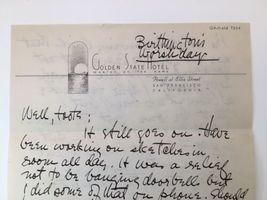 GArfield 7224
Worshday
GOLDEN STATE HOTEL
Powell at Ellis Street
SAN FRANCISCO
CALIFORNIA
Well, toots:
It still goes on. Have
been working on sketches in
room all day. It was a relief
not to be banging doorbell but
I did some of that on phone. Should